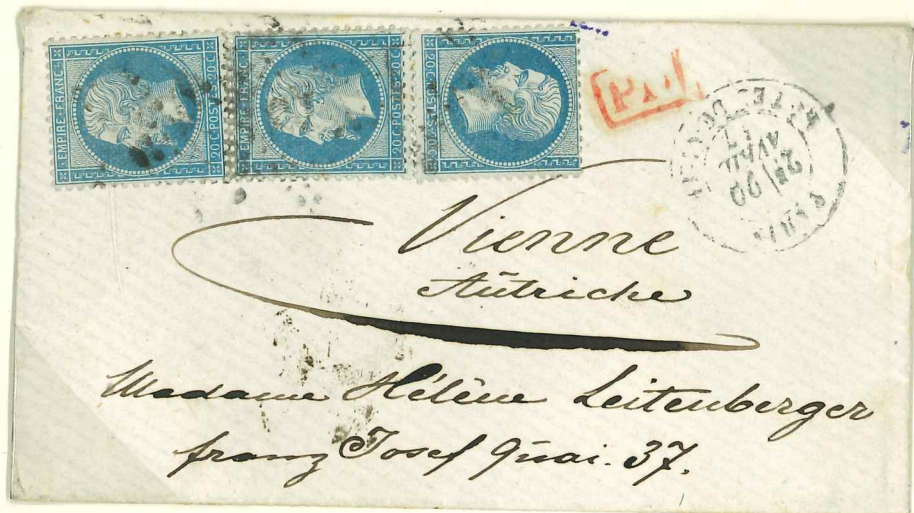 EMPIRE FRANC
20 C POSTES 20 C
EMPIRE FRANC
20 C POSTES 20 C
20 C POSTES 20 C
P.D.
PARIS
2E / 20
AVRIL
Vienne
Autriche
Madame Hélène Leitenberger
franz Josef Quai. 37.